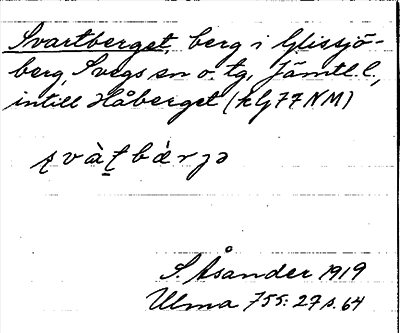 Svartberget, berg i Glissjö-
berg, Svegs sn o. tg, Jämtl. l.,
intill Håberget (kG77NM)
ʂvàʈbǽrjə
S. Åsander 1919
Ulma 755: 27 s. 64